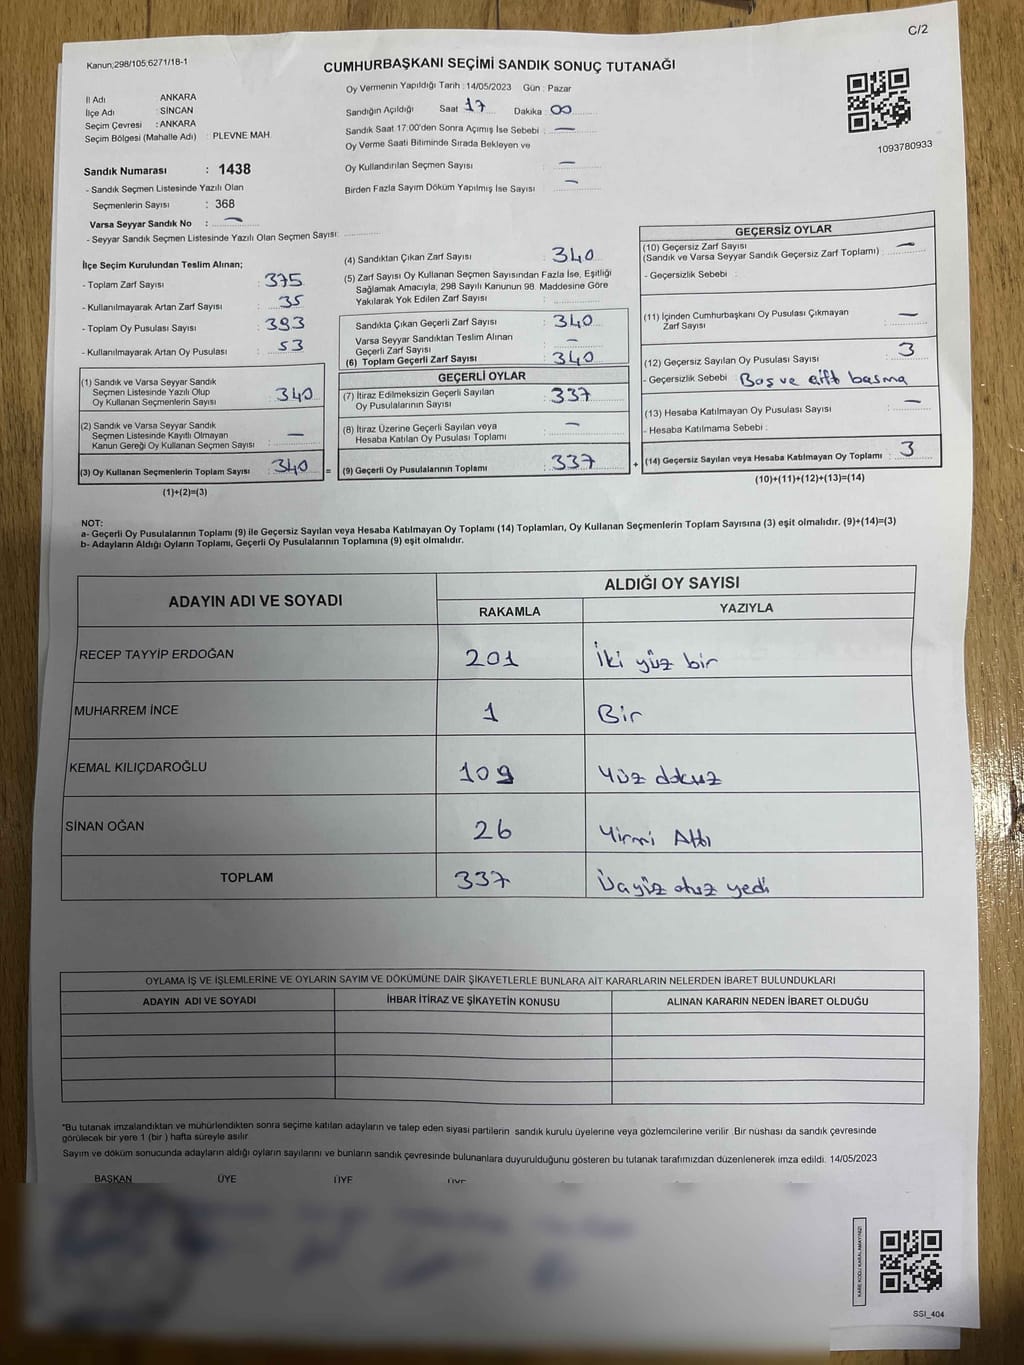 C/2
Kanun;298/105;6271/18-1
CUMHURBAŞKANI SEÇİMİ SANDIK SONUÇ TUTANAĞI
İl Adı ANKARA
İlçe Adı : SİNCAN
Seçim Çevresi : ANKARA
Seçim Bölgesi (Mahalle Adı) : PLEVNE MAH.
Sandık Numarası : 1438
- Sandık Seçmen Listesinde Yazılı Olan
Seçmenlerin Sayısı : 368
Varsa Seyyar Sandık No : —
- Seyyar Sandık Seçmen Listesinde Yazılı Olan Seçmen Sayısı:
Oy Vermenin Yapıldığı Tarih : 14/05/2023 Gün : Pazar
Sandığın Açıldığı Saat 17 Dakika : 00
Sandık Saat 17:00'den Sonra Açımış İse Sebebi : —
Oy Verme Saati Bitiminde Sırada Bekleyen ve
Oy Kullandırılan Seçmen Sayısı : —
Birden Fazla Sayım Döküm Yapılmış İse Sayısı : —
1093780933
İlçe Seçim Kurulundan Teslim Alınan;
- Toplam Zarf Sayısı : 375
- Kullanılmayarak Artan Zarf Sayısı : 35
- Toplam Oy Pusulası Sayısı : 393
- Kullanılmayarak Artan Oy Pusulası : 53
(1) Sandık ve Varsa Seyyar Sandık
Seçmen Listesinde Yazılı Olup
Oy Kullanan Seçmenlerin Sayısı : 340
(2) Sandık ve Varsa Seyyar Sandık
Seçmen Listesinde Kayıtlı Olmayan
Kanun Gereği Oy Kullanan Seçmen Sayısı : —
(3) Oy Kullanan Seçmenlerin Toplam Sayısı : 340 =
(1)+(2)=(3)
(4) Sandıktan Çıkan Zarf Sayısı : 340
(5) Zarf Sayısı Oy Kullanan Seçmen Sayısından Fazla İse, Eşitliği
Sağlamak Amacıyla, 298 Sayılı Kanunun 98. Maddesine Göre
Yakılarak Yok Edilen Zarf Sayısı :
Sandıkta Çıkan Geçerli Zarf Sayısı : 340
Varsa Seyyar Sandıktan Teslim Alınan
Geçerli Zarf Sayısı : —
(6) Toplam Geçerli Zarf Sayısı : 340
GEÇERLİ OYLAR
(7) İtiraz Edilmeksizin Geçerli Sayılan
Oy Pusulalarının Sayısı : 337
(8) İtiraz Üzerine Geçerli Sayılan veya
Hesaba Katılan Oy Pusulası Toplamı : —
(9) Geçerli Oy Pusulalarının Toplamı : 337 +
GEÇERSİZ OYLAR
(10) Geçersiz Zarf Sayısı
(Sandık ve Varsa Seyyar Sandık Geçersiz Zarf Toplamı) : —
- Geçersizlik Sebebi :
(11) İçinden Cumhurbaşkanı Oy Pusulası Çıkmayan
Zarf Sayısı : —
(12) Geçersiz Sayılan Oy Pusulası Sayısı : 3
- Geçersizlik Sebebi : Boş ve çift basma
(13) Hesaba Katılmayan Oy Pusulası Sayısı : —
- Hesaba Katılmama Sebebi :
(14) Geçersiz Sayılan veya Hesaba Katılmayan Oy Toplamı : 3
(10)+(11)+(12)+(13)=(14)
NOT:
a- Geçerli Oy Pusulalarının Toplamı (9) ile Geçersiz Sayılan veya Hesaba Katılmayan Oy Toplamı (14) Toplamları, Oy Kullanan Seçmenlerin Toplam Sayısına (3) eşit olmalıdır. (9)+(14)=(3)
b- Adayların Aldığı Oyların Toplamı, Geçerli Oy Pusulalarının Toplamına (9) eşit olmalıdır.
ADAYIN ADI VE SOYADI ALDIĞI OY SAYISI
RAKAMLA YAZIYLA
RECEP TAYYİP ERDOĞAN 201 İki yüz bir
MUHARREM İNCE 1 Bir
KEMAL KILIÇDAROĞLU 109 Yüz dokuz
SİNAN OĞAN 26 Yirmi Altı
TOPLAM 337 Üçyüz otuz yedi
OYLAMA İŞ VE İŞLEMLERİNE VE OYLARIN SAYIM VE DÖKÜMÜNE DAİR ŞİKAYETLERLE BUNLARA AİT KARARLARIN NELERDEN İBARET BULUNDUKLARI
ADAYIN ADI VE SOYADI İHBAR İTİRAZ VE ŞİKAYETİN KONUSU ALINAN KARARIN NEDEN İBARET OLDUĞU
*Bu tutanak imzalandıktan ve mühürlendikten sonra seçime katılan adayların ve talep eden siyasi partilerin sandık kurulu üyelerine veya gözlemcilerine verilir. Bir nüshası da sandık çevresinde
görülecek bir yere 1 (bir ) hafta süreyle asılır.
Sayım ve döküm sonucunda adayların aldığı oyların sayılarını ve bunların sandık çevresinde bulunanlara duyurulduğunu gösteren bu tutanak tarafımızdan düzenlenerek imza edildi. 14/05/2023
BAŞKAN ÜYE ÜYE ÜYE
KARE KODU KARALAMAYINIZ!
SSI_404